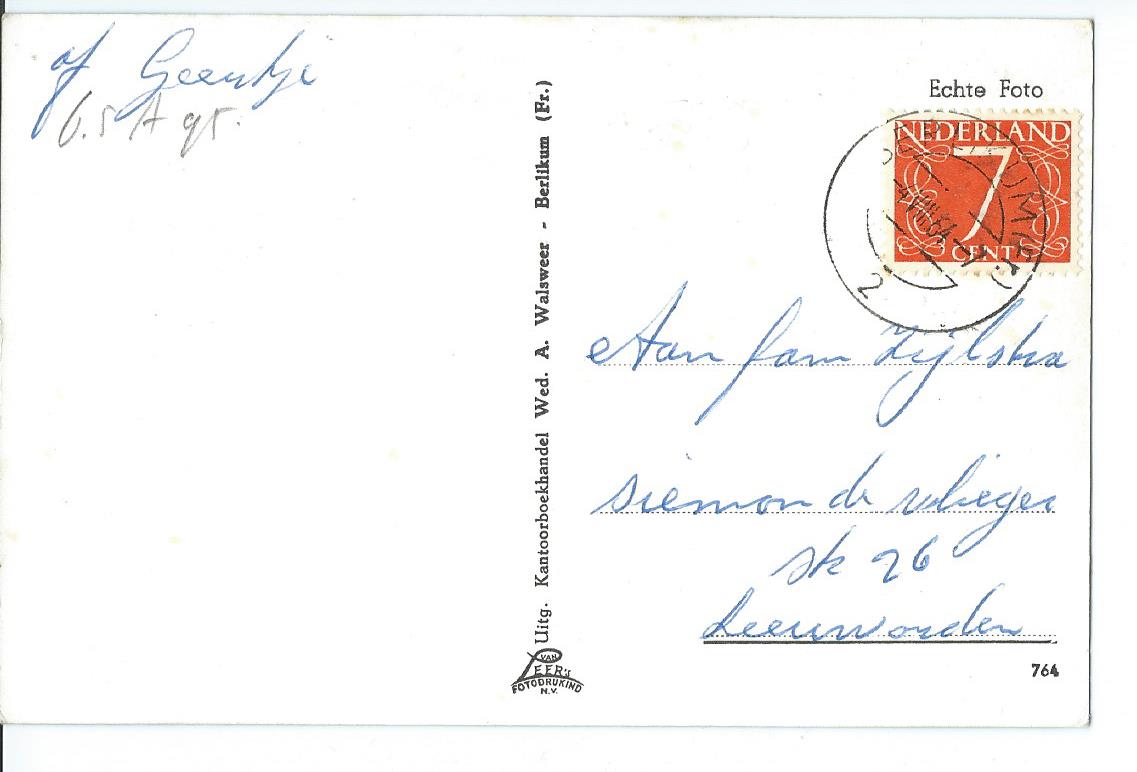 af Geertje
6.5 A 95.
Uitg. Kantoorboekhandel Wed. A. Walsweer - Berlikum (Fr.)
VAN
LEER'S
FOTODRUKIND
N.V.
Echte Foto
NEDERLAND
7
CENT
BERLIKUM (Fr.)
64
2
Aan fam Zijlstra
siemon de vlieger
str 26
Leeuwarden
764